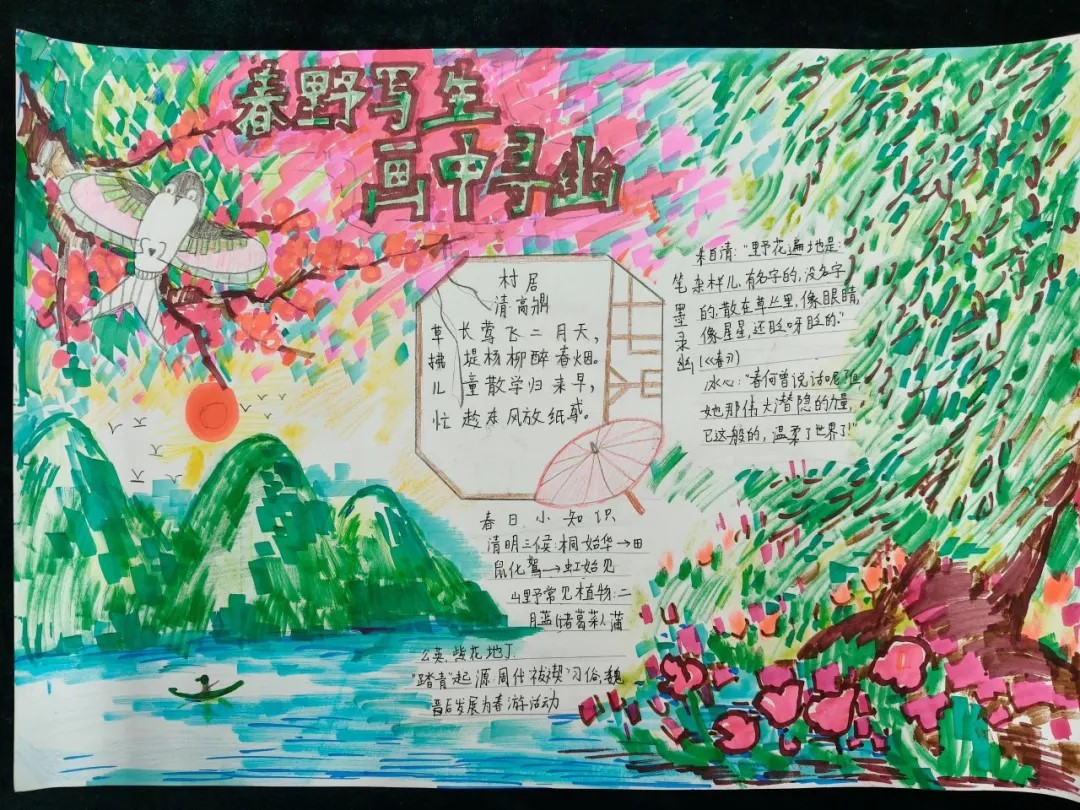 春野写生
画中寻幽
村居
清 高鼎
草长莺飞二月天，
拂堤杨柳醉春烟。
儿童散学归来早，
忙趁东风放纸鸢。
笔墨录幽
朱自清："野花遍地是：
杂样儿，有名字的，没名字
的，散在草丛里，像眼睛，
像星星，还眨呀眨的。"
(《春》)
冰心："春何曾说话呢？但
她那伟大潜隐的力量，
已这般的，温柔了世界了！"
春日小知识
清明三候：桐始华→田
鼠化鴽→虹始见
山野常见植物：二
月蓝(诸葛菜)、蒲
公英、紫花地丁
"踏青"起源：周代"祓禊"习俗，魏
晋后发展为春游活动